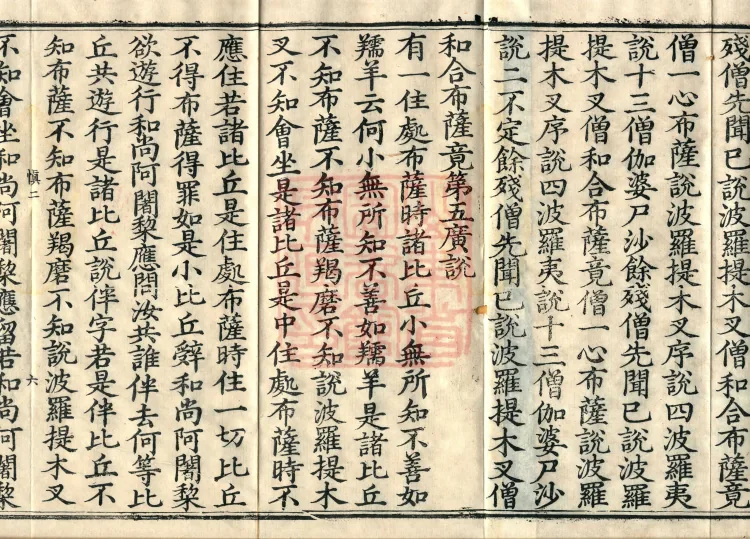 殘僧先聞已說波羅提木叉僧和合布薩竟
僧一心布薩說波羅提木叉序說四波羅夷
說十三僧伽婆尸沙餘殘僧先聞已說波羅
提木叉僧和合布薩竟僧一心布薩說波羅
提木叉序說四波羅夷說十三僧伽婆尸沙
說二不定餘殘僧先聞已說波羅提木叉僧
和合布薩竟第五廣說
有一住處布薩時諸比丘小無所知不善如
羺羊云何小無所知不善如羺羊是諸比丘
不知布薩不知布薩羯磨不知說波羅提木
叉不知會坐是諸比丘是中住處布薩時不
應住若諸比丘是住處布薩時住一切比丘
不得布薩得罪如是小比丘辭和尚阿闍黎
欲遊行和尚阿闍黎應問汝共誰伴去何等比
丘共遊行是諸比丘說伴字若是伴比丘不
知布薩不知布薩羯磨不知說波羅提木叉
慎二 六
不知會坐和尚阿闍黎應留若和尚阿闍黎